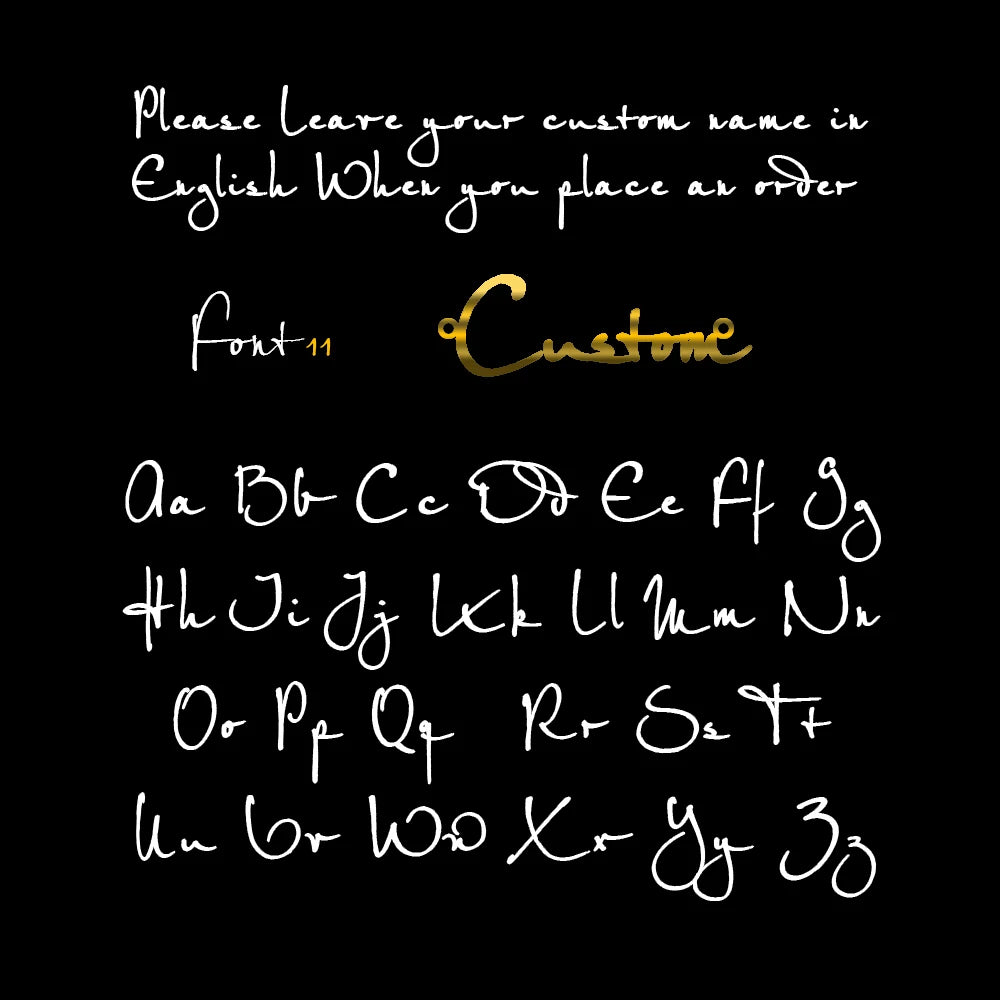 Please Leave your custom name in
English When you place an order
Font 11 Custom
Aa Bb Cc Dd Ee Ff Gg
Hh Ii Jj Kk Ll Mm Nn
Oo Pp Qq Rr Ss Tt
Uu Vv Ww Xx Yy Zz